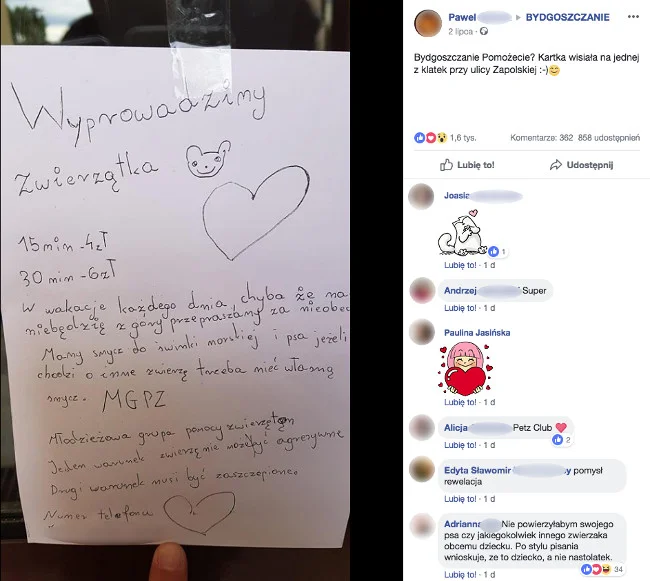 Wyprowadzimy
zwierzątka
15min -4zł
30 min -6zł
W wakacje każdego dnia, chyba że na
niebędzię z góry przepraszamy za nieobec
Mamy smycz do świnki morskiej i psa jeżeli
chodzi o inne zwierzę trzeba mieć własną
smycz. MGPZ
Młodzieżowa grupa pomocy zwierzętom
Jeden warunek zwierzę nie może być agresywne
Drugi warunek musi być zaszczepione.
Numer telefonu
Pawel ▸ BYDGOSZCZANIE
2 lipca ·
Bydgoszczanie Pomożecie? Kartka wisiała na jednej
z klatek przy ulicy Zapolskiej :-)😊
1,6 tys. Komentarze: 362 858 udostępnień
Lubię to! Udostępnij
Joasia
1
Lubię to! · 1 d
Andrzej Super
Lubię to! · 1 d
Paulina Jasińska
Lubię to! · 1 d
Alicja Petz Club ❤
2
Lubię to! · 1 d
Edyta Sławomir y pomysł
rewelacja
Lubię to! · 1 d
Adrianna Nie powierzyłabym swojego
psa czy jakiegokolwiek innego zwierzaka
obcemu dziecku. Po stylu pisania
wnioskuje, ze to dziecko, a nie nastolatek.
Lubię to! · 1 d 34